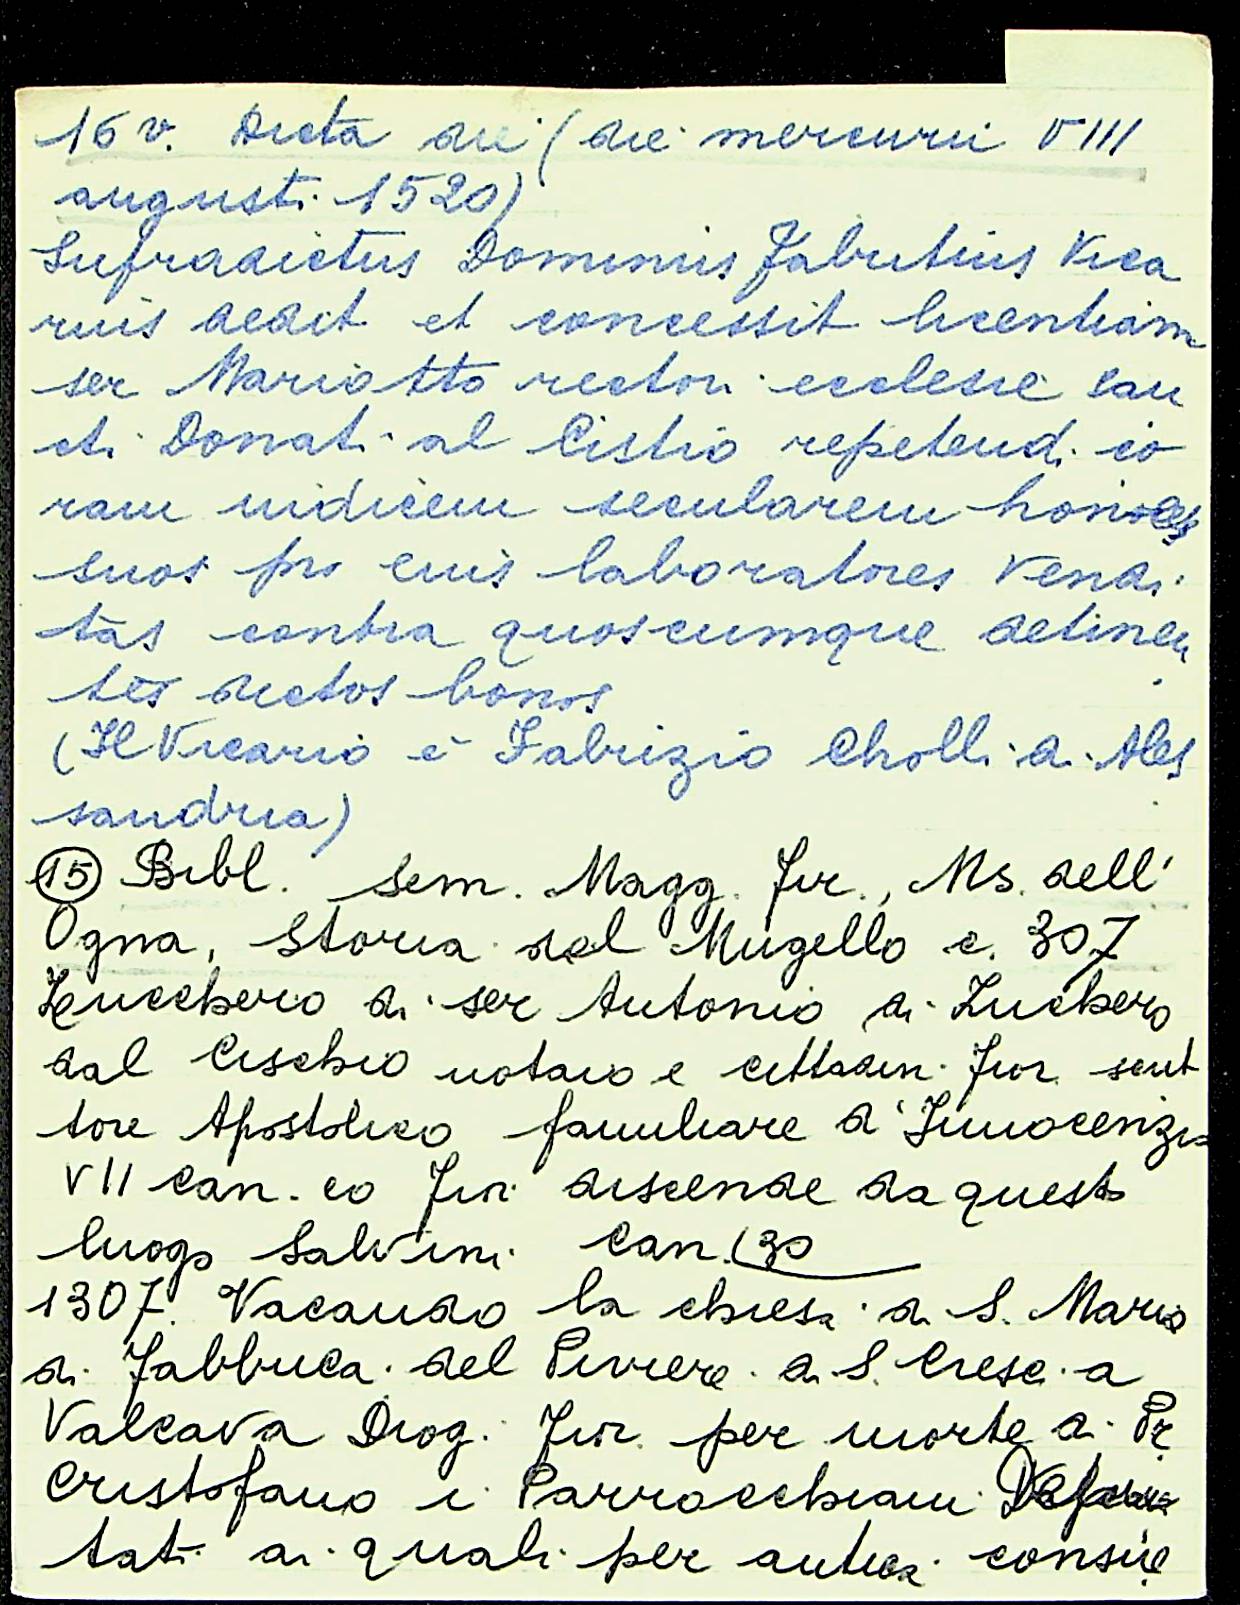 16 v. Dicta die (die mercurii VIII
augusti 1520)
Sufradictus Dominus Fabritius Vica
rius dedit et concessit licentiam
ser Mariotto rectori ecclesie san
cti Donati al Cistio repetendi co
ram iudicem secularem
suos pro eius laboratores vendi
tas contra quoscumque detinen
tes dictos bonos
(Il Vicario è Fabrizio Cholli di Ales
sandria)
(15) Bibl. Sem. Magg. Fir., Ms. dell'
Ogna, Storia del Mugello c. 307
Zucchero di ser Antonio di Zuchero
dal Cischio notaio e cittadin. Fior. scrit
tore Apostolico familiare d'Innocenzio
VII can.co Fior. discende da questo
luogo Salvini Can. (30
1307. Vacando la chiesa di S. Maria
di Fabbrica del Piviere di S. Cresci a
Valcava Diog. Fior. per morte di Pr
Cristofano i Parrocchiani
tati ai quali per antica consue